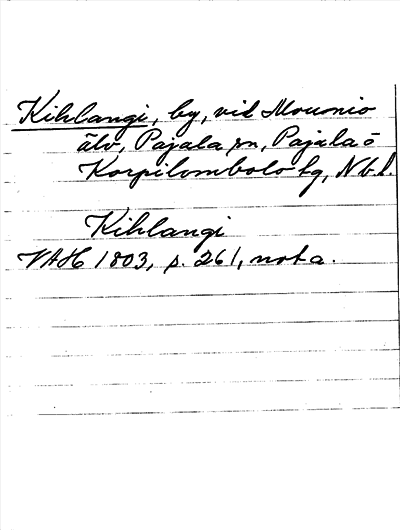 Kihlangi, by, vid Mounio
älv, Pajala sn, Pajala o
Korpilombolo tg, Nb.l.
Kihlangi
VAH 1803, p. 261, nota.